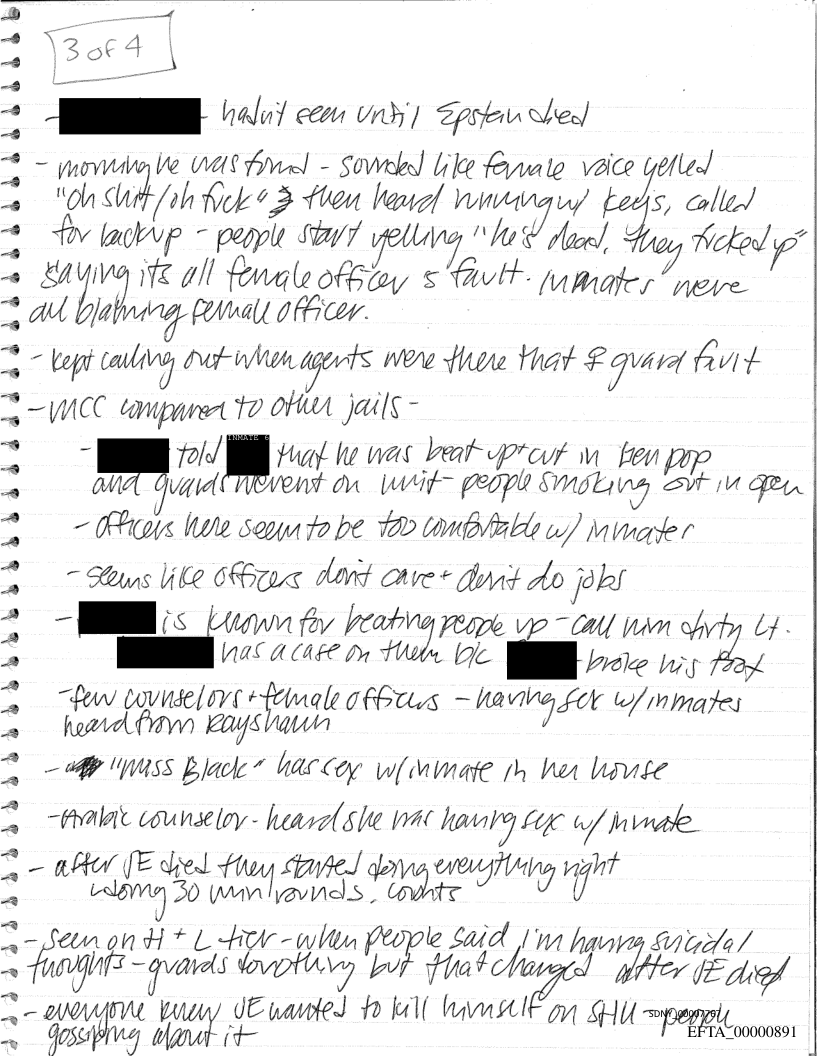 3 of 4
- hadn't seen until Epstein died
- morning he was found - sounded like female voice yelled
"oh shit/oh fuck" then heard running w/ keys, called
for backup - people start yelling "he's dead, they fucked up"
saying it's all female officer's fault. Inmates were
all blaming female officer.
- kept calling out when agents were there that ♀ guard fault
- MCC compared to other jails -
- told INMATE 6 that he was beat up + cut in Gen pop
and guards weren't on unit - people smoking out in open
- officers here seem to be too comfortable w/ inmates
- seems like officers don't care + don't do jobs
- is known for beating people up - call him dirty Lt.
has a case on them b/c broke his foot
- few counselors + female officers - having sex w/ inmates
heard from Rayshawn
- "Miss Black" has sex w/ inmate in her house
- Arabic counselor - heard she was having sex w/ inmate
- after JE died they started doing everything right
doing 30 min rounds, counts
- seen on H + L tier - when people said I'm having suicidal
thoughts - guards do nothing but that changed after JE died
- everyone knew JE wanted to kill himself on SHU - people
gossiping about it
EFTA_00000891